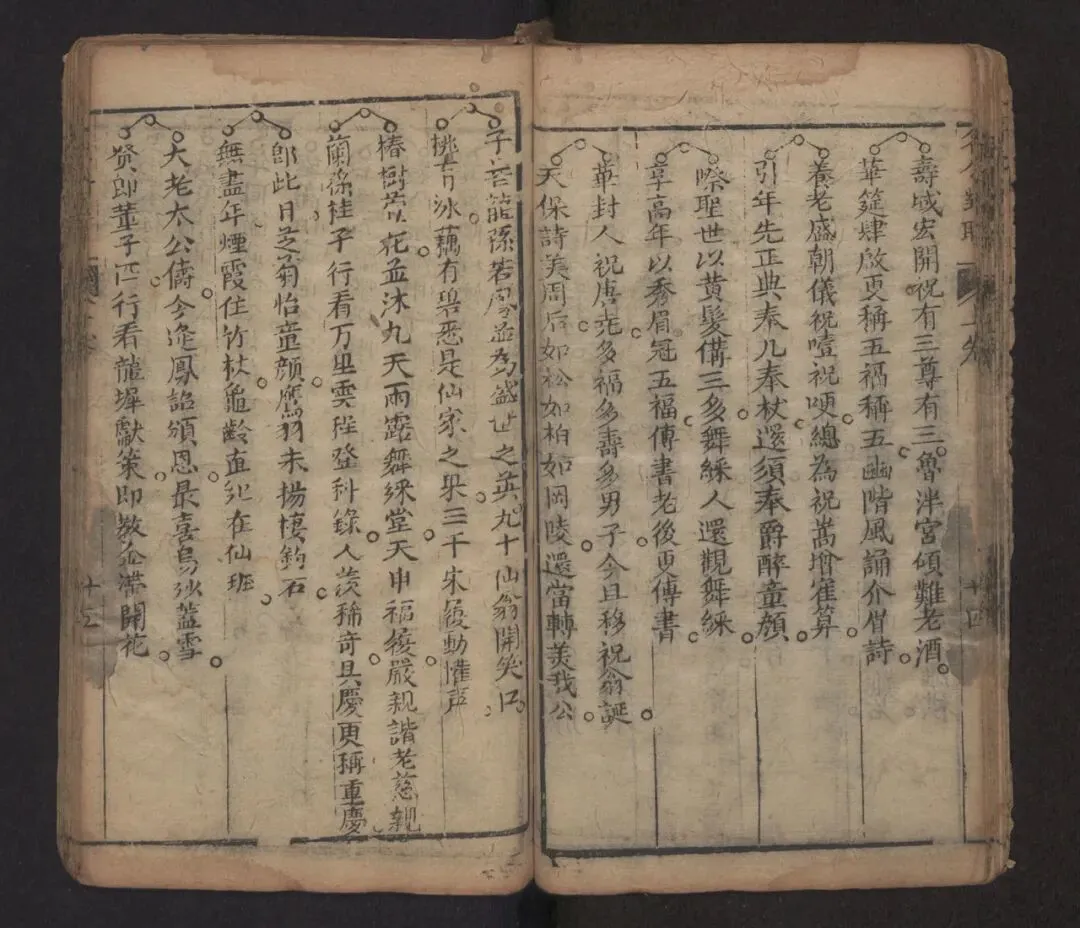 壽域宏開祝有三尊有三魯泮宮頌難老酒
華筵肆啟更稱五福稱五豳階風誦介眉詩
養老盛朝儀祝噎祝哽總為祝嵩增隺算
引年先正典奉几奉杖還須奉爵醉童顔
際聖世以黄髮備三多舞綵人還觀舞綵
享高年以秀眉冠五福傳書老後更傳書
華封人祝唐尭多福多壽多男子今且移祝翁誕
天保詩美周后如松如柏如岡陵還當轉美我公
子龍孫若鳳並為盛世之英九十仙翁開笑口
桃冰藕有碧悉是仙家之果三千朱履動懽声
椿樹萱花並沐九天雨露舞綵堂天申福履嚴親諧老慈親
蘭孫桂子行看万里雲程登科錄人羨稱奇具慶更稱重慶
即此日芝菊怡童顔鷹羽未揚棲釣石
無盡年煙霞住竹杖龜齡直列在仙班
大老太公儔今逢鳳詔頒恩最喜烏紗葢雪
賢郎董子匹行看龍墀獻策即教金帶開花
十四
十五